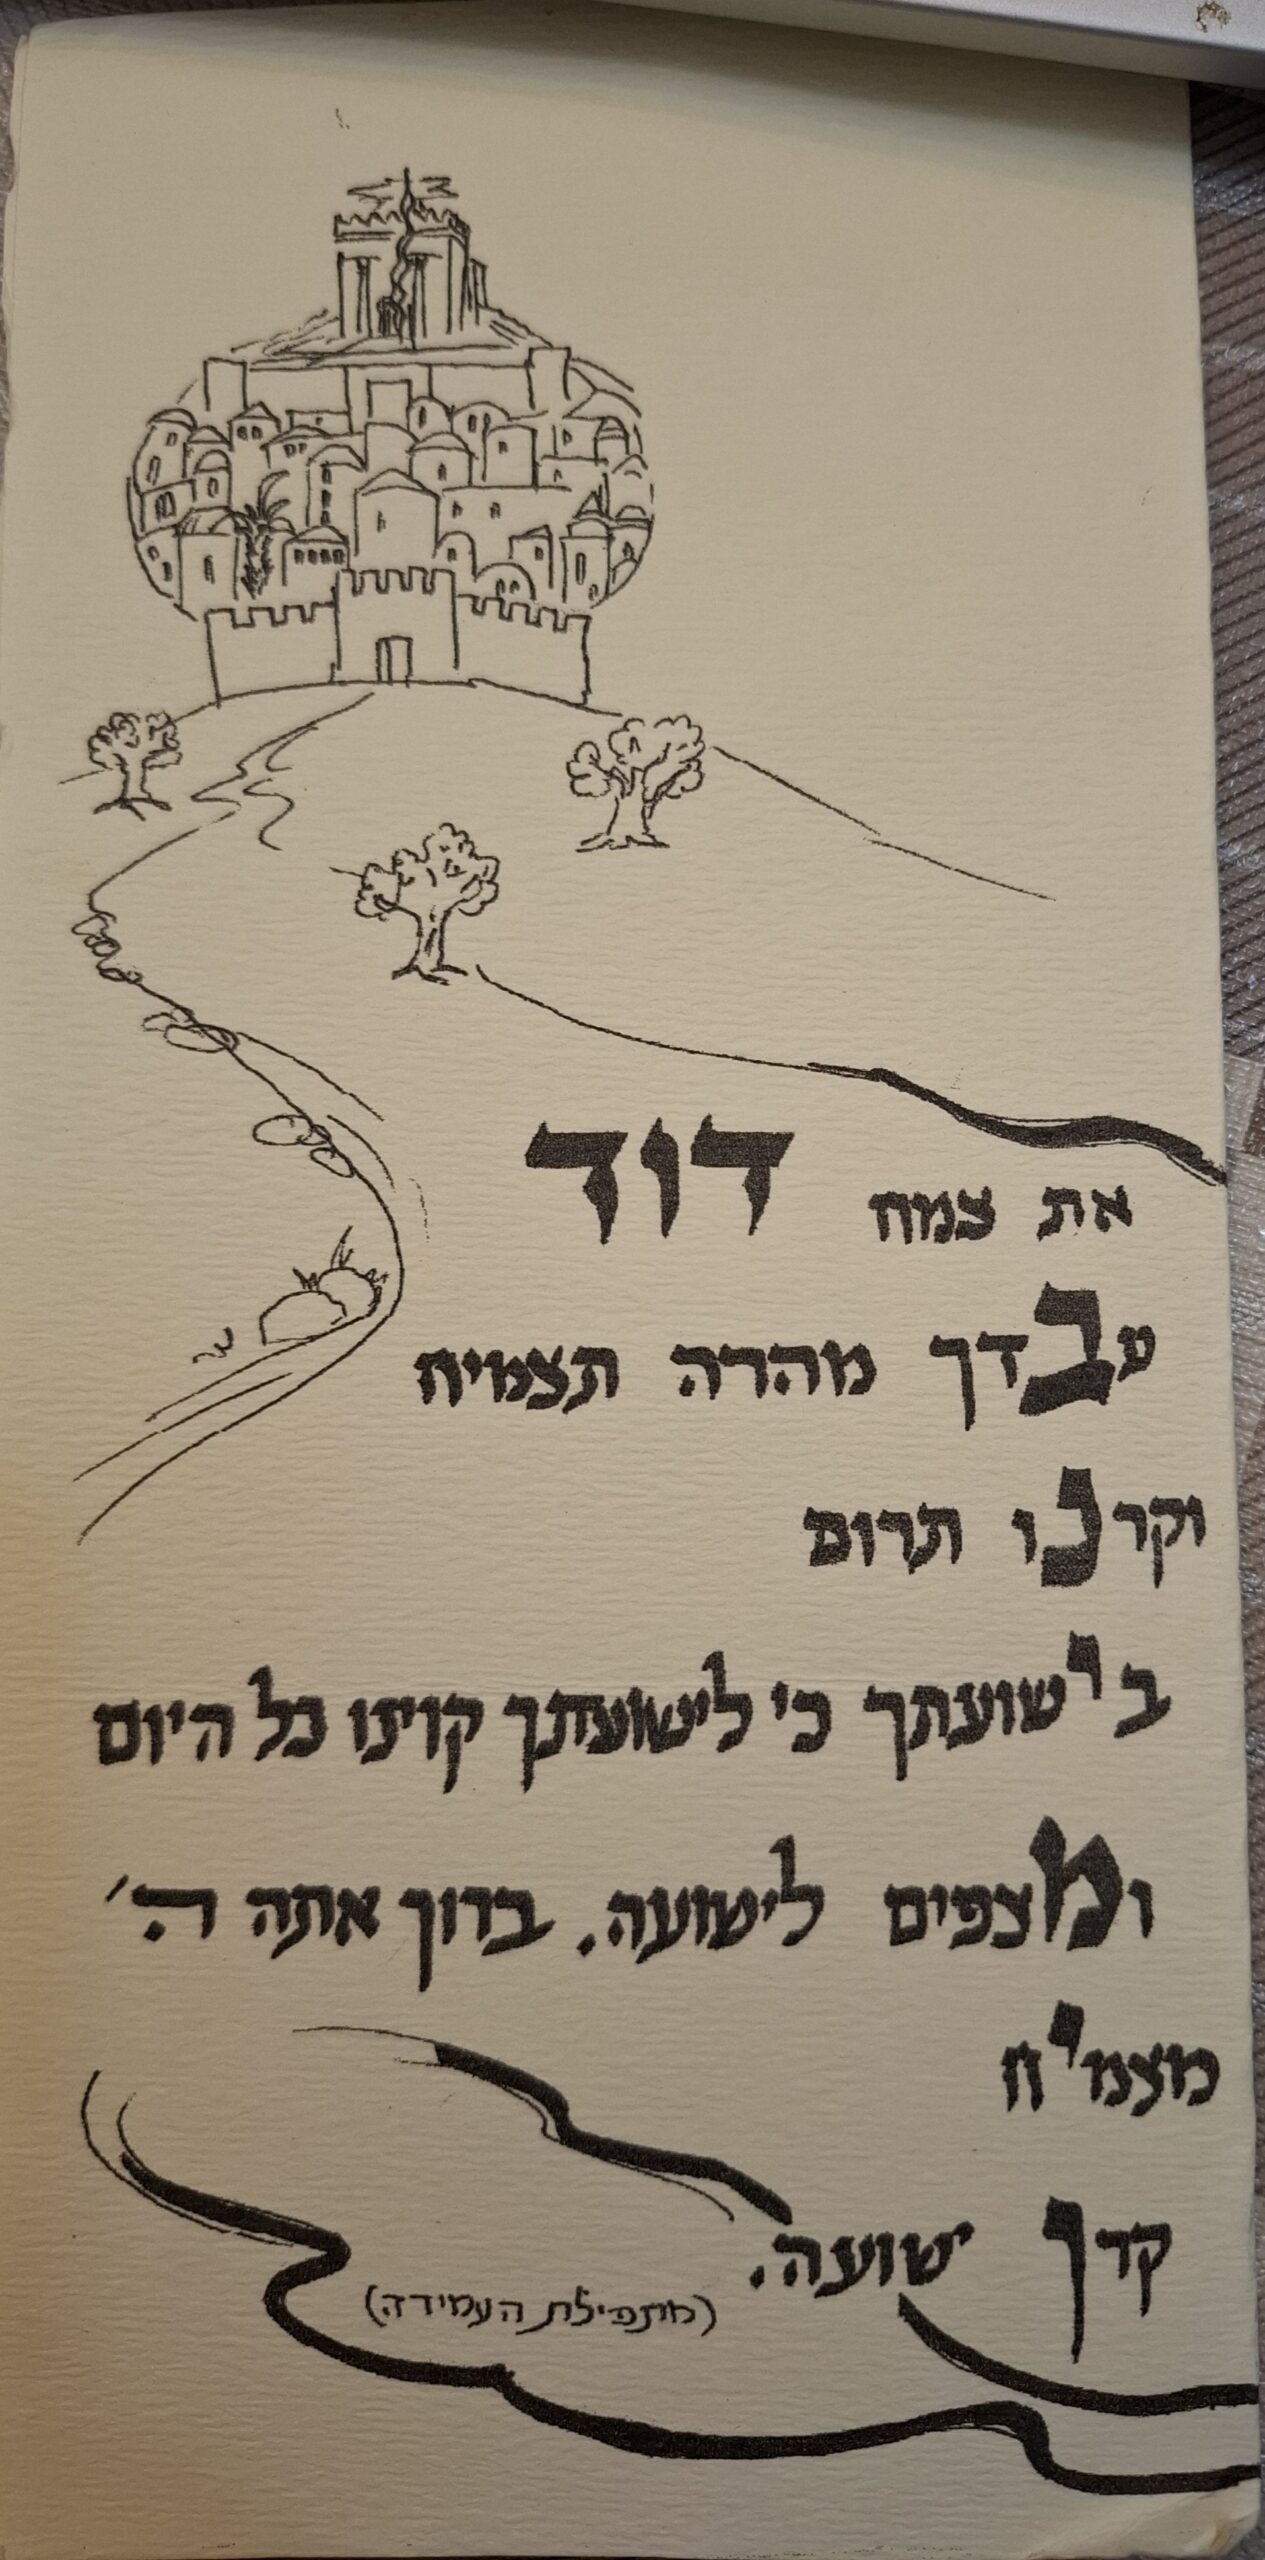 את צמח דוד
עבדך מהרה תצמיח
וקרנו תרום
בישועתך כי לישועתך קוינו כל היום
ומצפים לישועה. ברוך אתה ה׳
מצמיח
קרן ישועה.
(מתפילת העמידה)